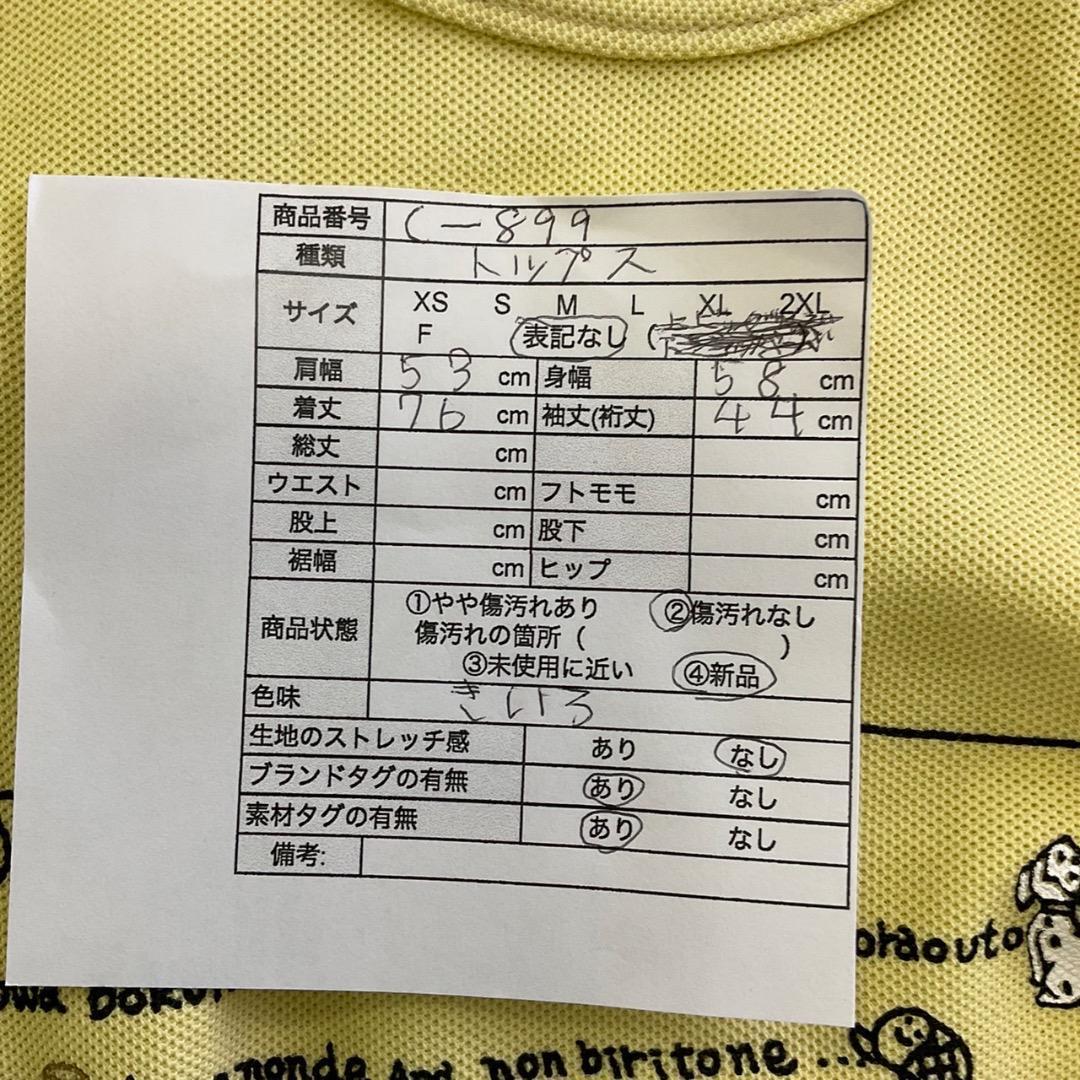 商品番号 C-899
種類 トップス
サイズ XS S M L XL 2XL
F 表記なし (
肩幅 53 cm 身幅 58 cm
着丈 76 cm 袖丈(裄丈) 44 cm
総丈 cm
ウエスト cm フトモモ cm
股上 cm 股下 cm
裾幅 cm ヒップ cm
商品状態 ①やや傷汚れあり ②傷汚れなし
傷汚れの箇所 ( )
③未使用に近い ④新品
色味 きいろ
生地のストレッチ感 あり なし
ブランドタグの有無 あり なし
素材タグの有無 あり なし
備考:
oraouto
nonde And nonbiritone...